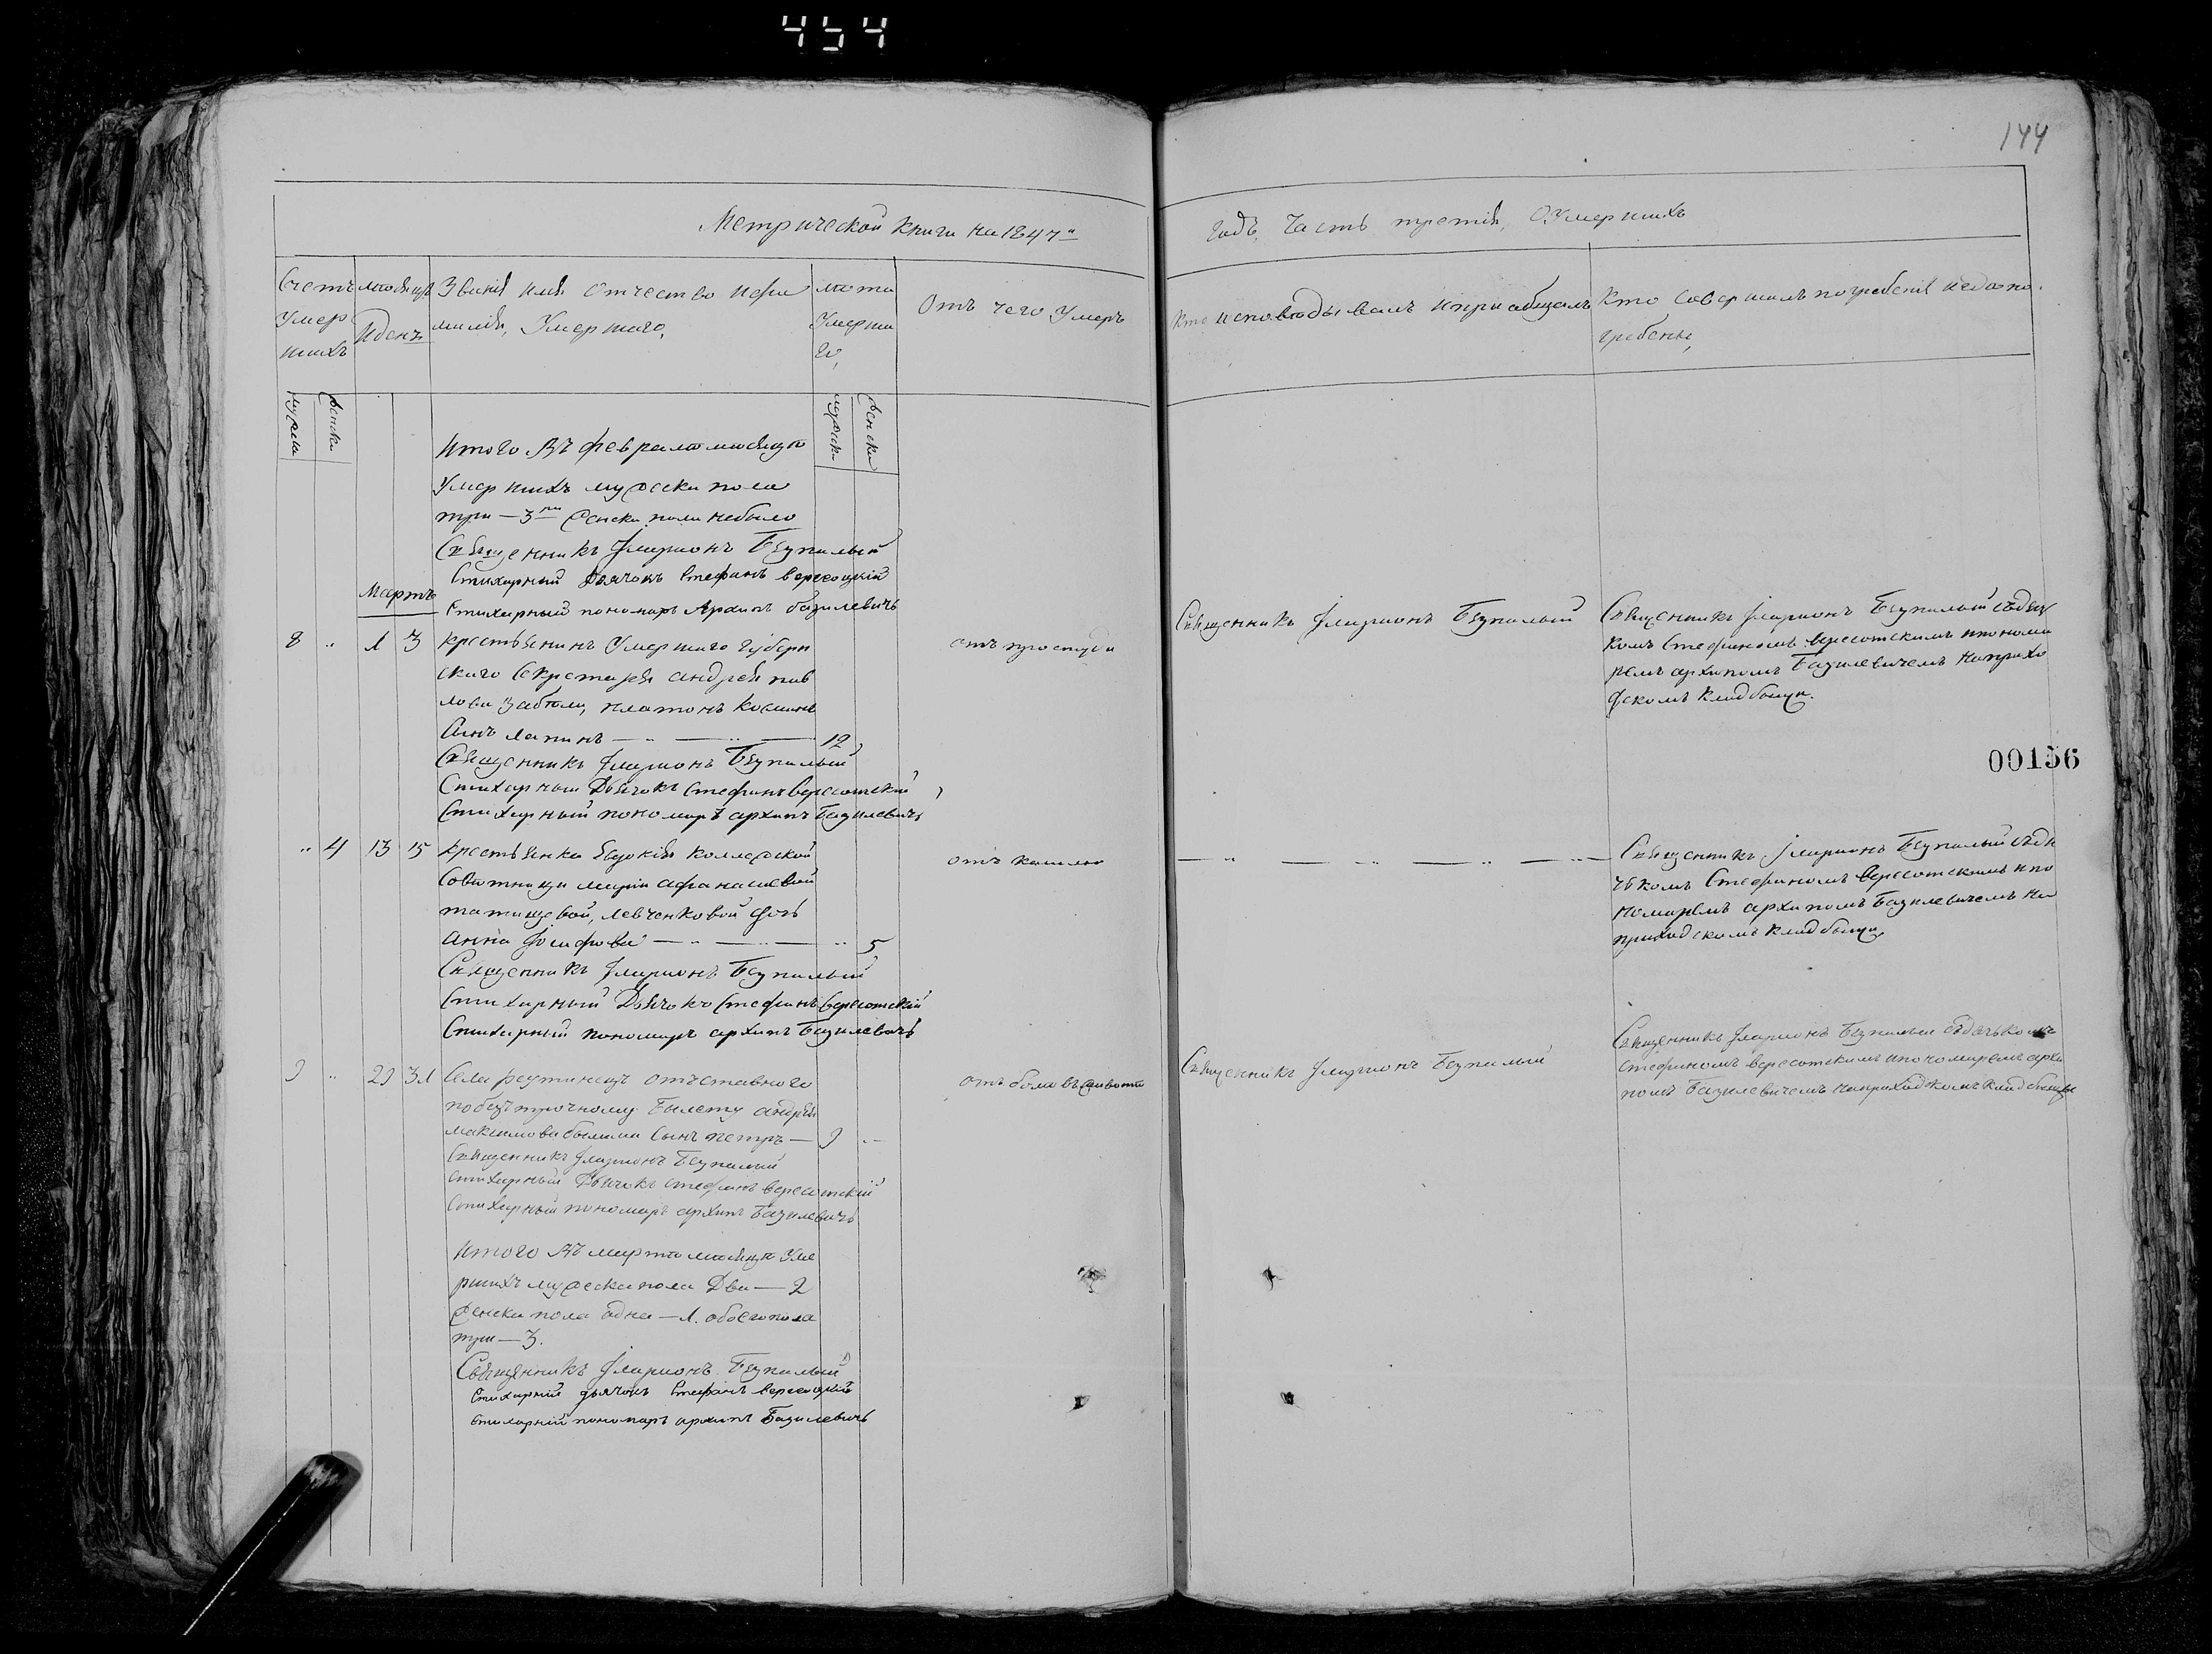 454
144
Метрической книги на 1847й
годъ, Часть третія, О Умершихъ
Счетъ Умершихъ
мѣсяцъ и день
Званія имя Отчество и фамилія, Умершаго,
лѣта Умершаго,
Отъ чего Умеръ
Кто исповѣдывалъ и пріобщалъ
Кто Совершилъ погребеніе и где погребены,
мужска
женска
мужска
женска
Итого въ февралѣ мѣсяцѣ
Умершихъ мужска пола
три — 3 женска пола небыло
Священникъ Іларионъ Безпалый
Стихарный Дьячокъ Стефанъ Вересоцкій
Стихарный пономарь Архипъ Базилевичъ
Мартъ
8 " 1 3 крестьянинъ Умершаго губерн
скаго Секретаря андрея пав
лова Забѣлы, платонъ Косминъ
Сынъ Лапинъ — 12
отъ простуди
Священникъ Іларионъ Безпалый
Священникъ Іларионъ Безпалый съ дьяч
комъ Стефаномъ вересотскимъ и понома
ремъ архипомъ Базилевичемъ на прихо
дскомъ кладбищи.
Священникъ Іларионъ Безпалый
Стихарный Дьячокъ Стефанъ вересотскій
Стихарный пономарь архипъ Базилевичъ
00156
" 4 13 15 крестьянка Евдокія коллежской
Совѣтници маріи афанасиевой
татищевой, левченковой дочь
анна Іосифова — 5
отъ кашлю
— " — — " — " —
Священникъ Іларионъ Безпалый съ дья
чкомъ Стефаномъ вересотскимъ и по
номаремъ архипомъ Базилевичемъ на
приходскомъ кладбищи,
Священникъ Іларионъ Безпалый
Стихарный Дьячокъ Стефанъ Вересотскій
Стихарный пономарь архипъ Базилевичъ
9 " 29 31 отъставного
по безъсрочному билету андрея
максимова сынъ петръ — 9 "
отъ боли въ животѣ
Священникъ Іларионъ Безпалый
Священникъ Іларионъ Безпалый съ дьячкомъ
стефаномъ вересотскимъ и пономаремъ архи
помъ Базилевичемъ на приходскомъ кладбищи
Священникъ Іларионъ Безпалый
Стихарный Дьячокъ Стефанъ вересотскій
Стихарный пономарь архипъ Базилевичъ
Итого въ мартѣ мѣсяцѣ Уме
ршихъ мужеска пола Два — 2
женска пола одна — 1. обоего пола
три — 3.
Священникъ Іларионъ Безпалый
Стихарній дьячокъ Стефанъ Вересоцкій
Стихарній пономарь архипъ Базилевичъ